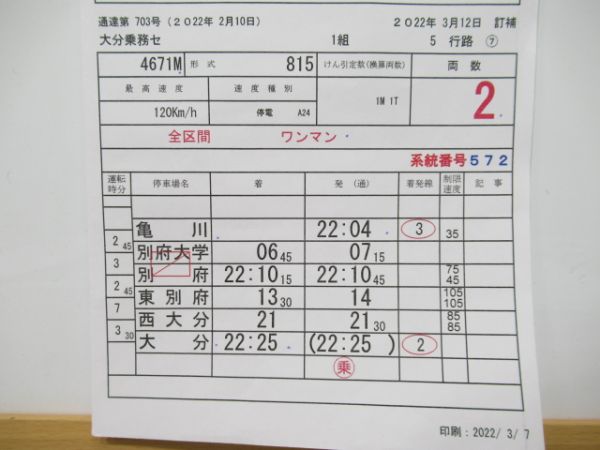 通達第 703号(2022年 2月10日) 2022年 3月12日 訂補
大分乗務セ 1組 5 行路 ⑦
4671M 形式 815 けん引定数(換算両数) 両数
最高速度 速度種別 1M 1T 2
120Km/h 停電 A24
全区間 ワンマン
系統番号572
運転時分 停車場名 着 発(通) 着発線 制限速度 記事
亀川 22:04 3 35
2 45
別府大学 06 45 07 15
3
別府 22:10 15 22:10 45 75 45
2 45
東別府 13 30 14 105 105
7
西大分 21 21 30 85 85
3 30
大分 22:25 (22:25 ) 2
乗
印刷:2022/ 3/ 7